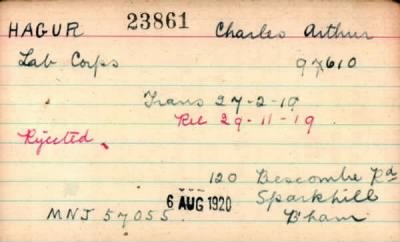 HAGUR 23861 Charles Arthur
Lab Corps 97610
Trans 27-2-19
Rec 29-11-19
Rejected.
120 Bescombe Rd
6 AUG 1920 Sparkhill
MNJ 57055. B'ham